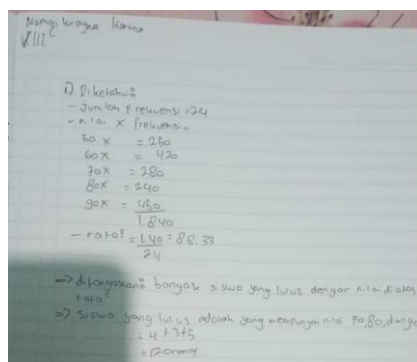 Nama: Wayna Karina
VIII
1) Diketahui:
- Jumlah Frekuensi : 24
- nilai x frekuensi =
50 x = 250
60 x = 420
70 x = 280
80 x = 240
90 x = 450
1.840
- rata² = 1.40 = 88.33
24
=> ditanyakan: banyak siswa yang lulus dengan nilai diatas
rata²
=> Siswa yang lulus adalah yang mempunyai nilai 70,80, dan 90
= 4 + 3 + 5
= 12 orang